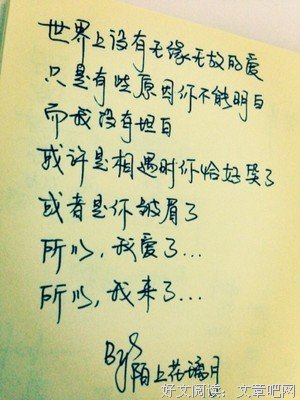 世界上没有无缘无故的爱
只是有些原因你不能明白
而我没有坦白
或许是相遇时你恰好哭了
或者是你皱眉了
所以,我爱了...
所以,我来了...
By 陌上花璃月
好文阅读:文章吧网